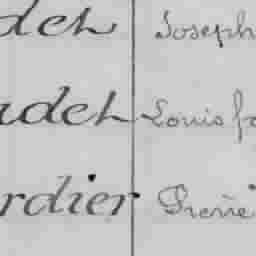 det Joseph
adet Louis fo
rdier Pierre